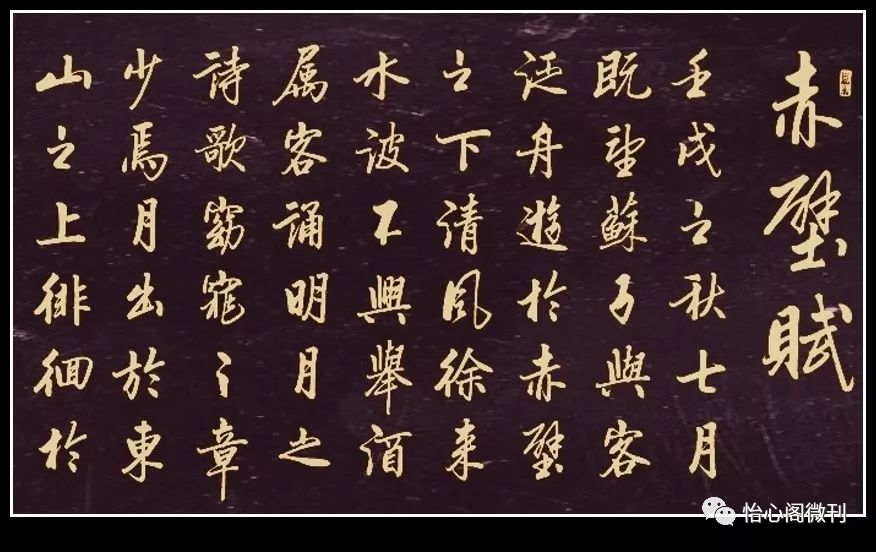 赤壁賦
壬戌之秋七月
既望蘇子與客
泛舟遊於赤壁
之下清風徐来
水波不興舉酒
属客誦明月之
詩歌窈窕之章
少焉月出於東
山之上徘徊於
怡心阁微刊